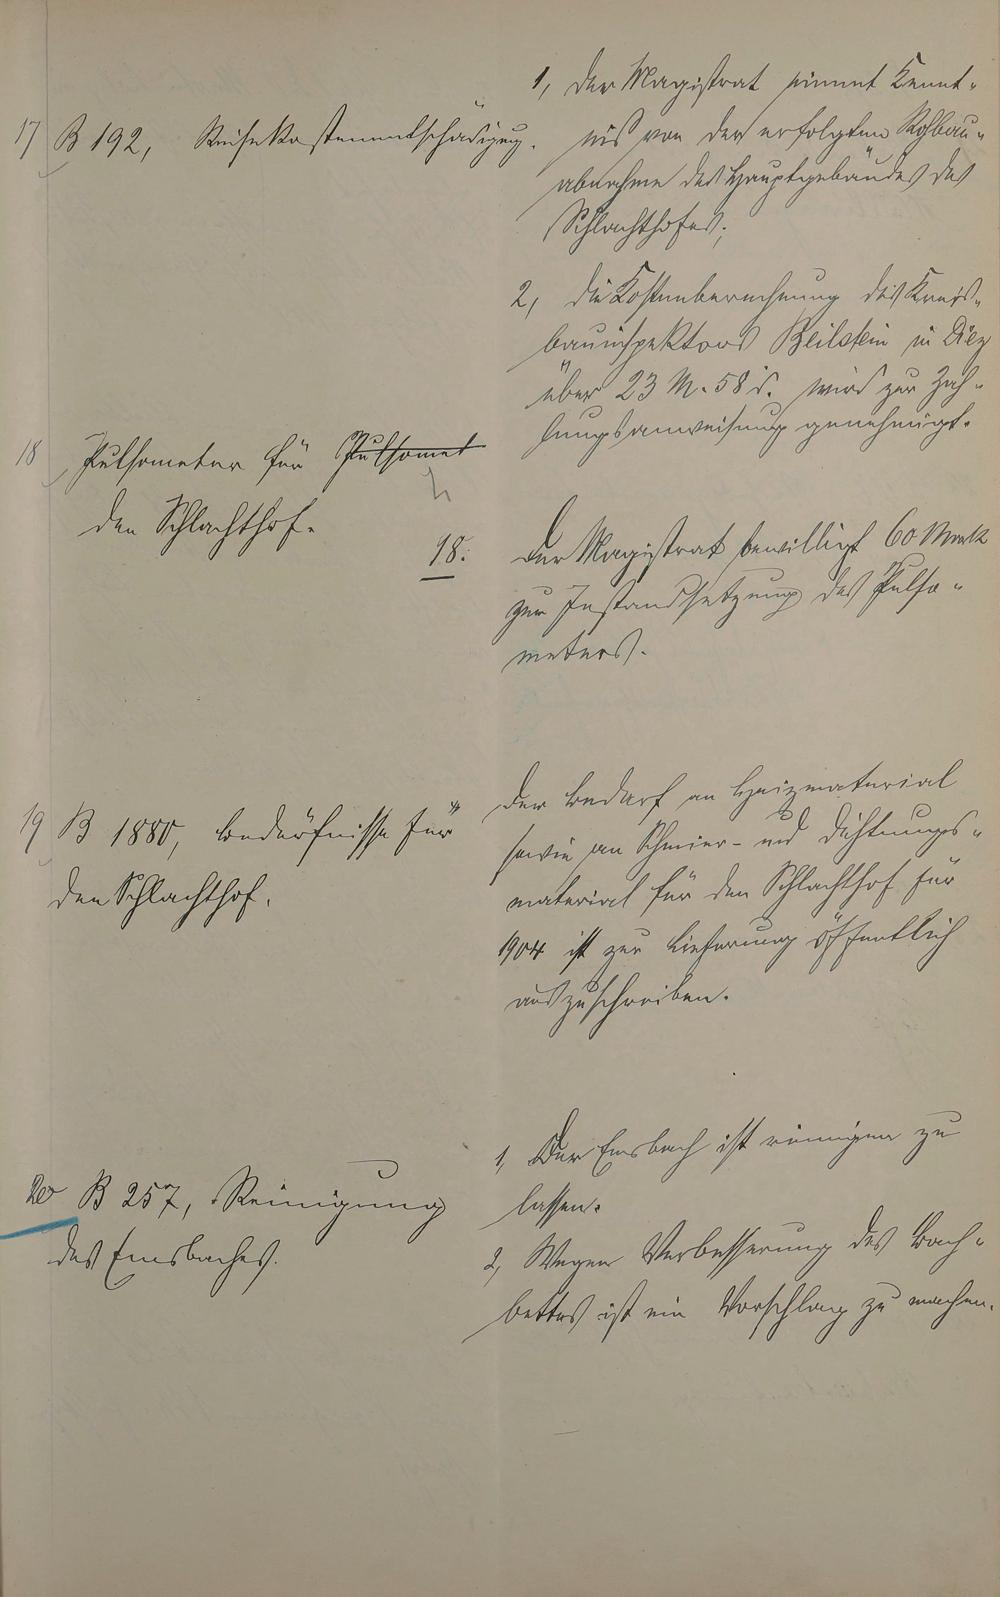 17 B 192, Reisekostenentschädigung.
1, Der Magistrat nimmt Kennt-
nis von der erfolgten Rohbau-
abnahme des Hauptgebäudes des
Schlachthofes;
2, die Kostenberechnung des Kreis-
bauinspektors Beilstein in Diez
über 23 M. 58 d. wird zur Zah-
lungsanweisung genehmigt.
18 Pulsometer für Pulsomet
den Schlachthof.
18.
Der Magistrat bewilligt 60 Mark
zur Instandsetzung des Pulso-
meters.
19 B 1880, Bedürfnisse für
den Schlachthof.
Der Bedarf an Heizmaterial
sowie an Schmier- und Dichtungs-
material für den Schlachthof für
1904 ist zur Lieferung öffentlich
auszuschreiben.
20 B 257, Reinigung
des Emsbaches.
1, Der Emsbach ist reinigen zu
lassen.
2, Wegen Verbesserung des Bach-
bettes ist ein Vorschlag zu machen.